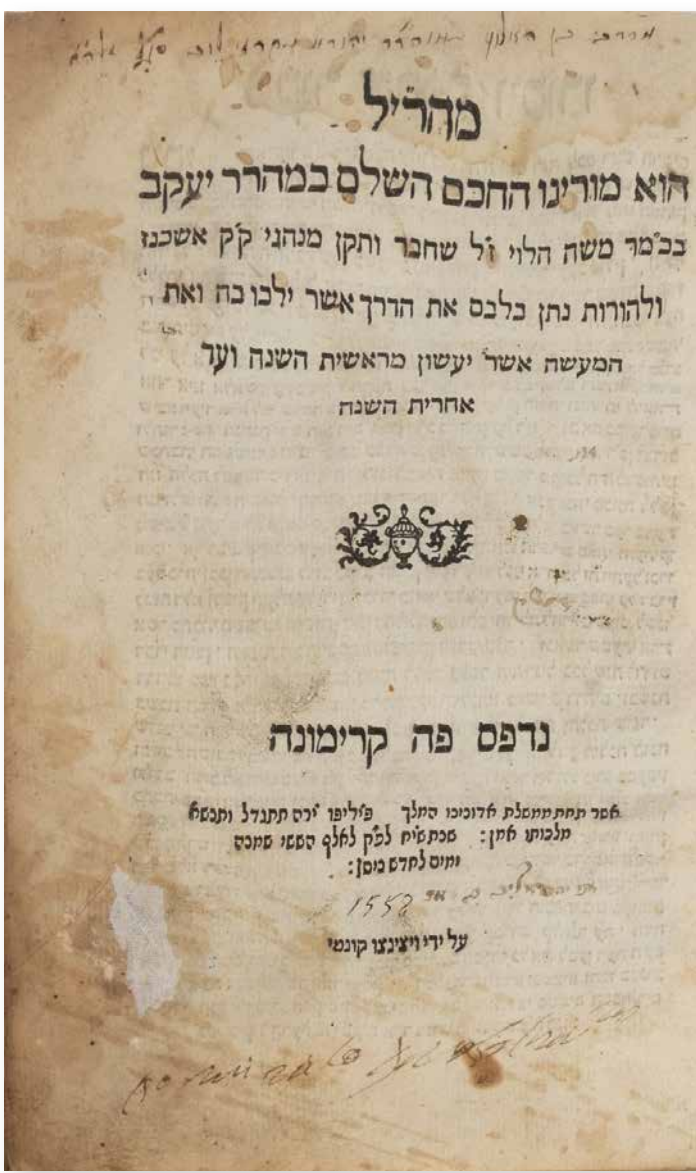 מהריל
הוא מורינו החכם השלם במהרר יעקב
בכ״מר משה הלוי ז״ל שחבר ותקן מנהגי ק״ק אשכנז
ולהורות נתן בלבם את הדרך אשר ילכו בה ואת
המעשה אשר יעשון מראשית השנה ועד
אחרית השנה
נדפס פה קרימונה
אשר תחת ממשלת אדונינו המלך פיליפו יר״ה תתגדל ותנשא
מלכותו אמן: שנת שי״ח לפ״ק לאלף הששי שמנה
ימים לחדש ניסן:
1558
על ידי ויצינצו קונטי